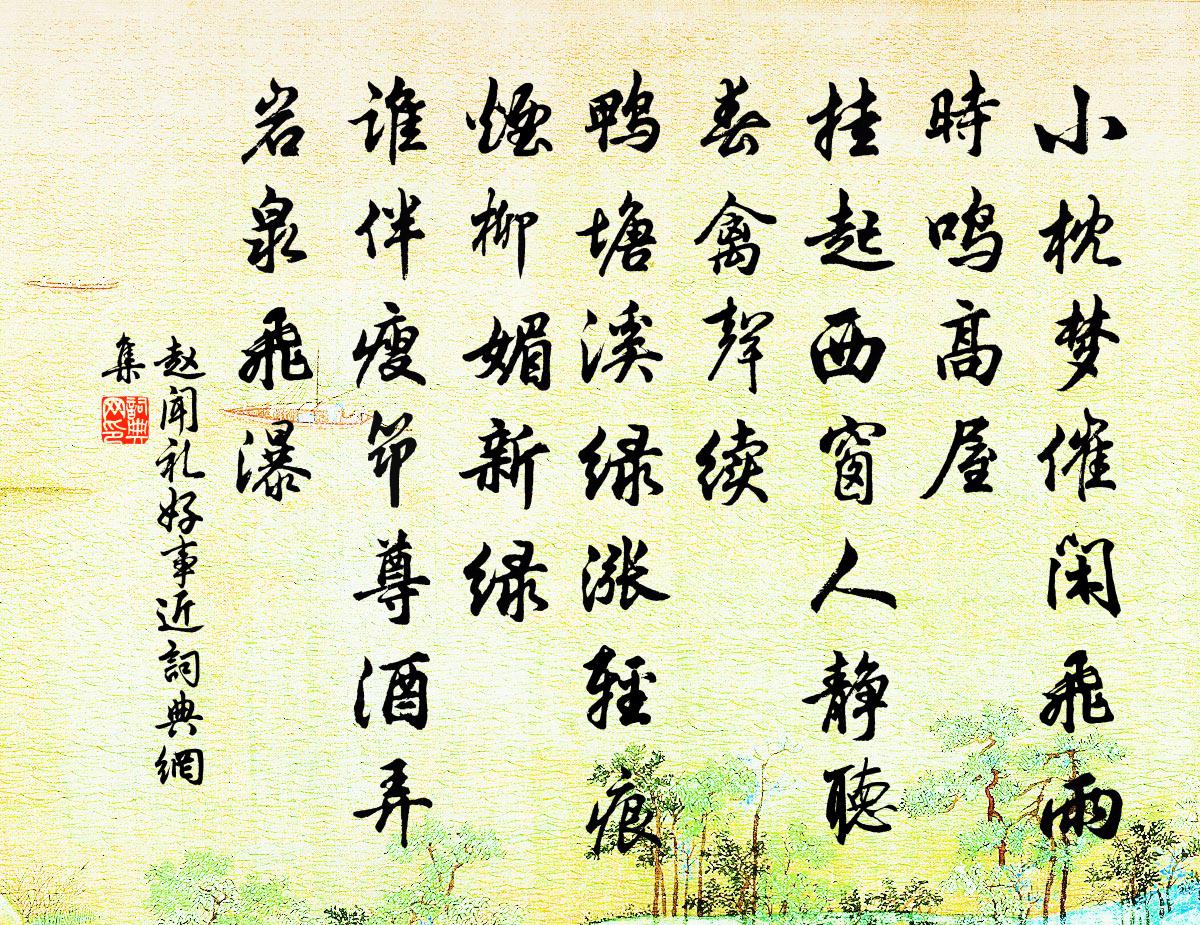 小枕梦催闲飛雨
時鸣高屋
挂起西窗人静聽
春禽聲续
鸭塘溪绿涨輕痕
烟柳媚新绿
谁伴瘦笻尊酒弄
岩泉飛瀑
赵闻礼好事近詞典網
集
詞典
网印